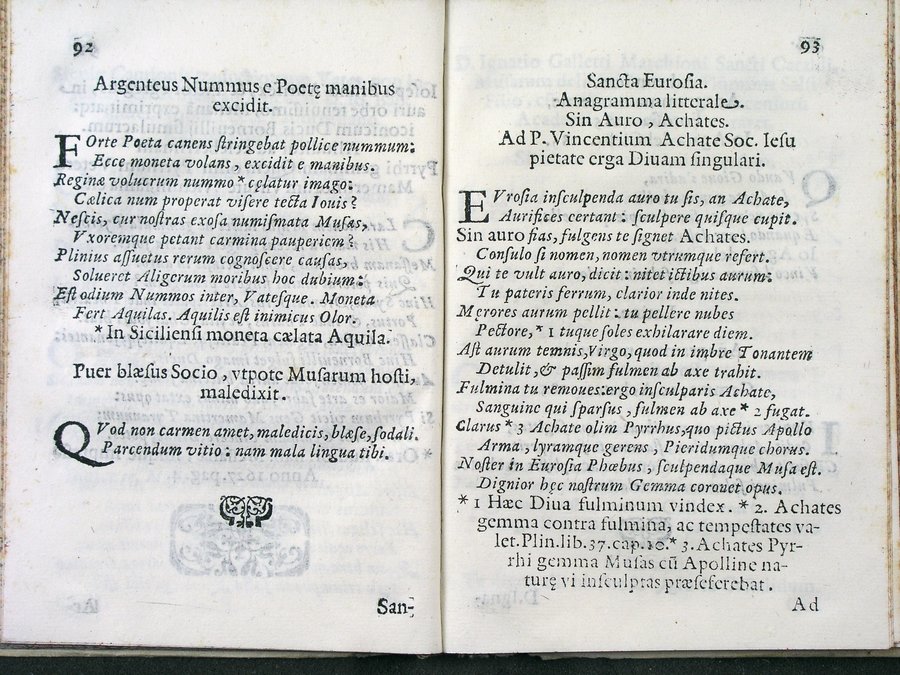 92
Argenteus Nummus e Poetę manibus
excidit.
FOrte Poeta canens stringebat pollice nummum:
Ecce moneta volans, excidit e manibus.
Reginæ volucrum nummo * cęlatur imago:
Cælica num properat visere tecta Iouis?
Nescis, cur nostras exosa numismata Musas,
Vxoremque petant carmina pauperiem?
Plinius assuetus rerum cognoscere causas,
Solueret Aligerum moribus hoc dubium:
Est odium Nummos inter, Vatesque. Moneta
Fert Aquilas. Aquilis est inimicus Olor.
* In Siciliensi moneta cælata Aquila.
Puer blæsus Socio, vtpote Musarum hosti,
maledixit.
QVod non carmen amet, maledicis, blæse, sodali.
Parcendum vitio: nam mala lingua tibi.
San-
93
Sancta Eurosia.
Anagramma litterale.
Sin Auro, Achates.
Ad P. Vincentium Achate Soc. Iesu
pietate erga Diuam singulari.
EVrosia insculpenda auro tu sis, an Achate,
Aurifices certant: sculpere quisque cupit.
Sin auro fias, fulgens te signet Achates.
Consulo si nomen, nomen vtrumque refert.
Qui te vult auro, dicit: nitet ictibus aurum:
Tu pateris ferrum, clarior inde nites.
Męrores aurum pellit: tu pellere nubes
Pectore, * 1 tuque soles exhilarare diem.
Ast aurum temnis, Virgo, quod in imbre Tonantem
Detulit, & passim fulmen ab axe trahit.
Fulmina tu remoues: ergo insculparis Achate,
Sanguine qui sparsus, fulmen ab axe * 2 fugat.
Clarus * 3 Achate olim Pyrrhus, quo pictus Apollo
Arma, lyramque gerens, Pieridumque chorus.
Noster in Eurosia Phœbus, sculpendaque Musa est.
Dignior hęc nostrum Gemma coronet opus.
* 1 Hæc Diua fulminum vindex. * 2. Achates
gemma contra fulmina, ac tempestates va-
let. Plin. lib. 37. cap. 10. * 3. Achates Pyr-
rhi gemma Musas cū Apolline na-
turę vi insculptas præseferebat.
Ad